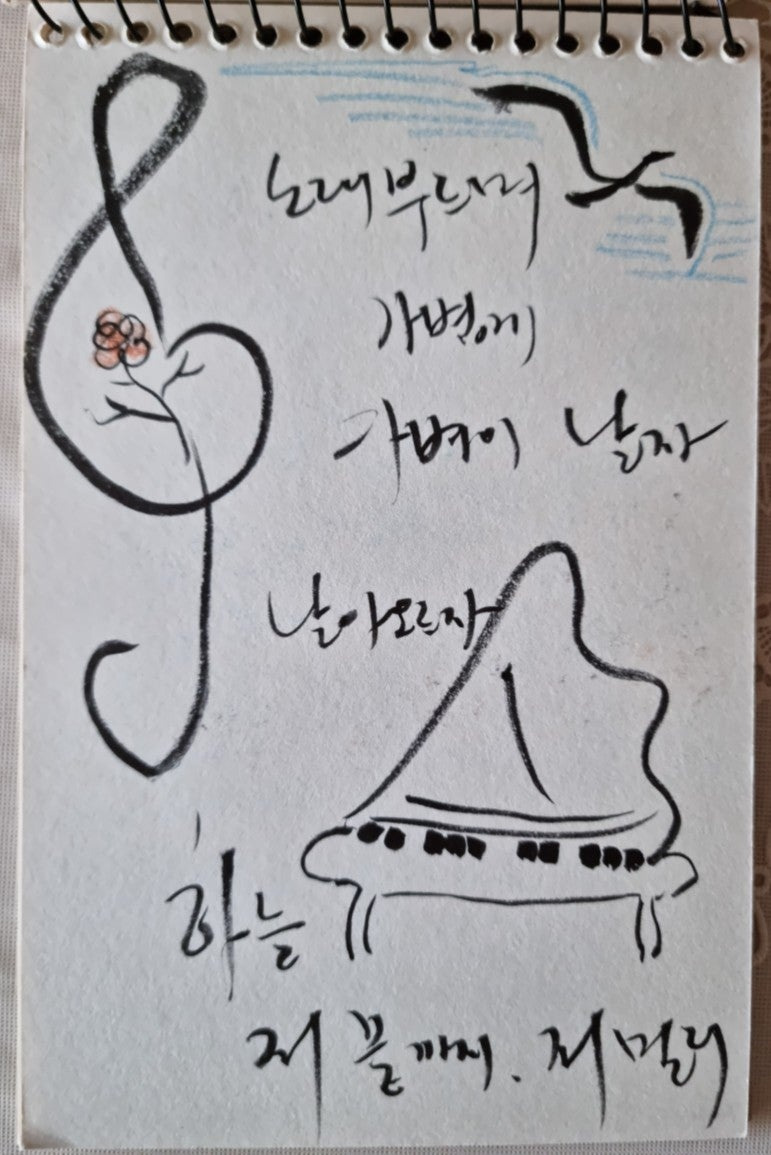 노래부르며
가볍게
가벼이 날자
날아오르자
하늘
저 끝까지. 저 멀리